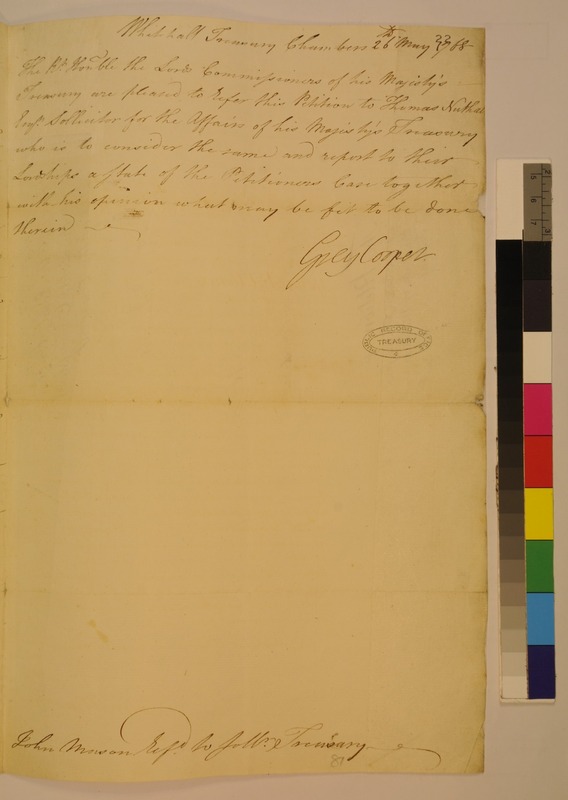 Whitehall Treasury Chambers 26 May 1768
The Rt. Honble the Lords Commissioners of his Majesty's
Treasury are pleased to refer this Petition to Thomas Nuthall
Esqr. Sollicitor for the Affairs of his Majesty's Treasury
who is to consider the same and report to their
Lordships a state of the Petitioners Case together
with his opinion what may be fit to be done
therein
Grey Cooper
PUBLIC RECORD OFFICE
TREASURY
John Mason Refd. to Sollr. Treasury